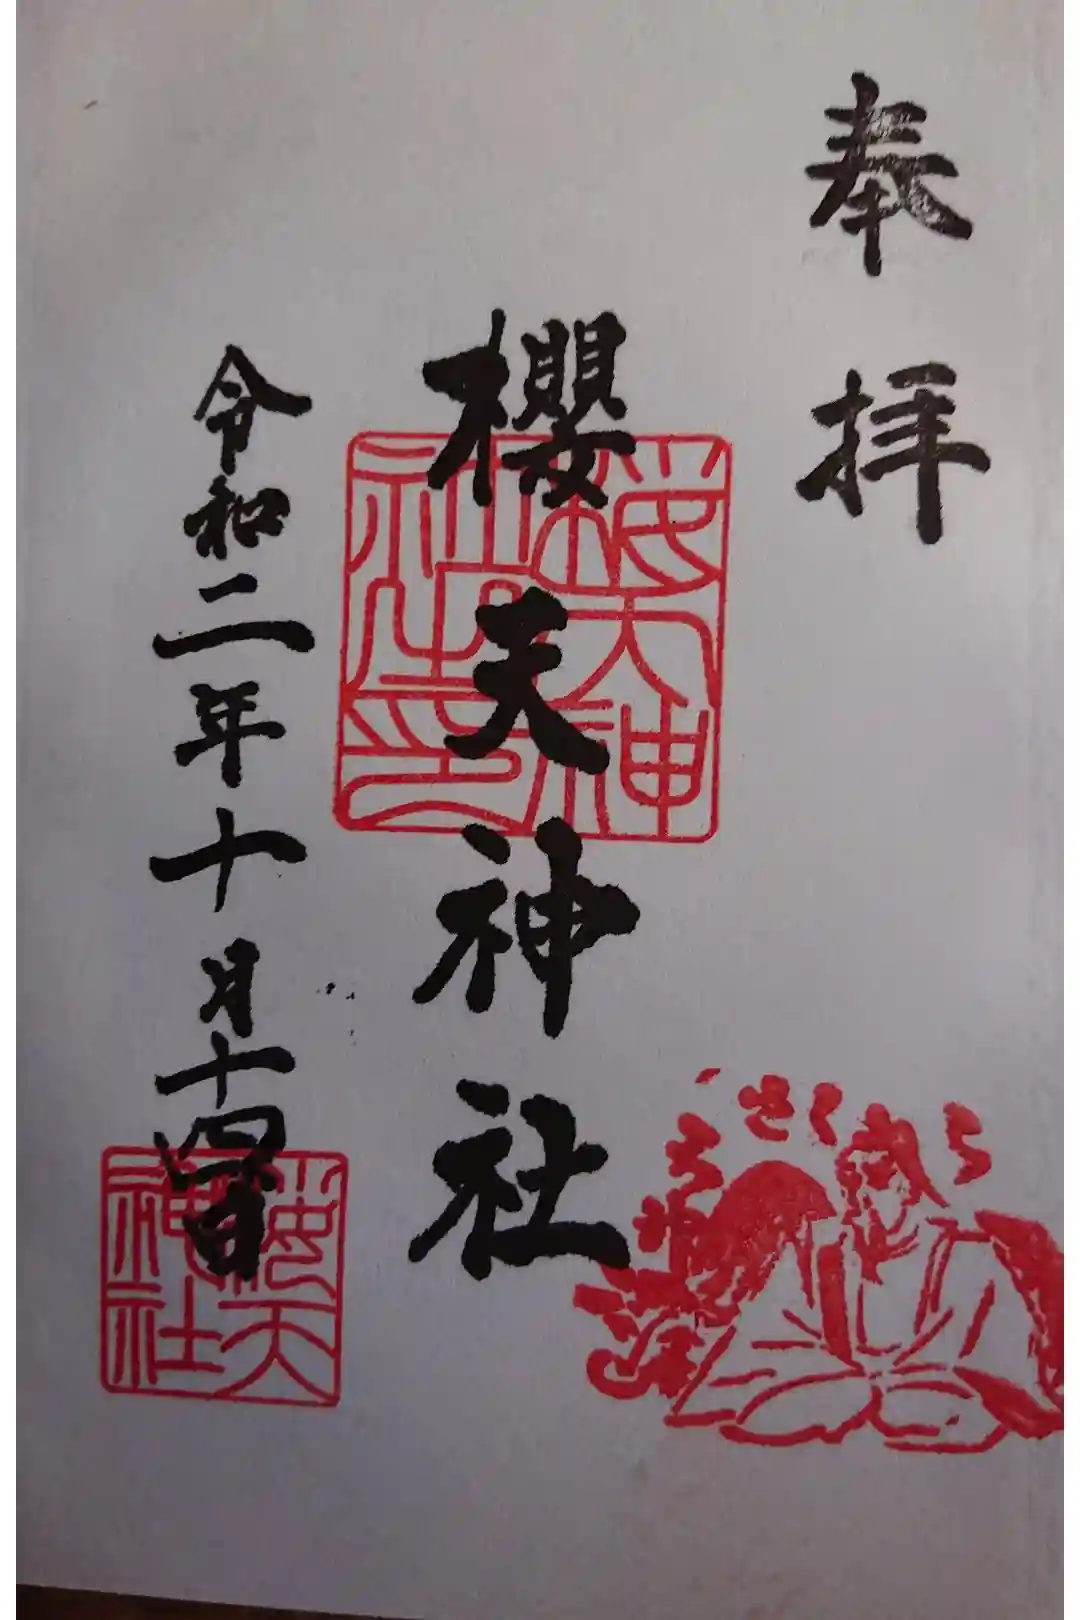 奉拝
櫻天神社
桜天神
社之印
令和二年十月十四日
桜天
神社
さくら